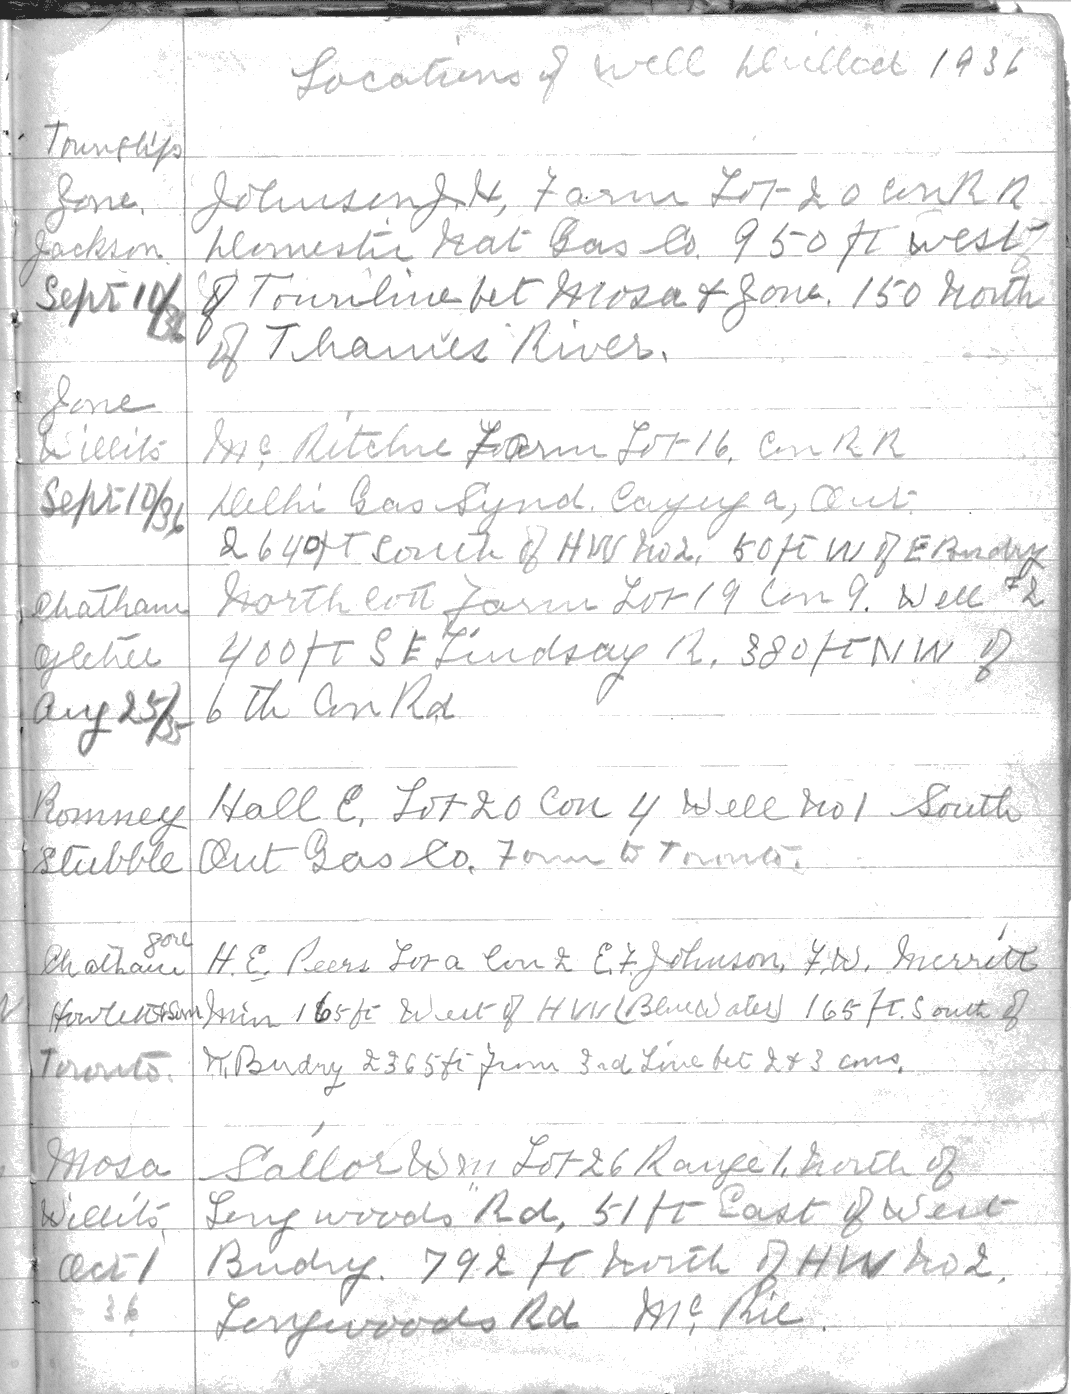 Locations of Well Drilled 1936
Townships
Zone. Johnson J H, Farm Lot 20 Con R R
Jackson. Domestic Nat Gas Co. 950 ft west of
Sept 10/36 of Townline bet Mosa & Zone. 150 North
of Thames River.
Zone
Willits Mc Ritchie Farm Lot 16, Con R R
Sept 10/36 Delhi Gas Synd. Cayuga, Ont.
2640 ft South of HW No 2, 50 ft W of E Bndry
Chatham Northcott Farm Lot 19 Con 9. Well #2
400 ft S E Lindsay R. 380 ft N W of
Aug 25/35 6 th Con Rd
Romney Hall E, Lot 20 Con 4 Well No 1 South
Stubble Ont Gas Co. Form to Toronto.
Chatham gore H. E. Peers Lot a Con 2 E. F. Johnson, F. W. Merritt
Howlett & Son Min 165 ft West of HW (Blue Water) 165 ft. South of
Toronto. N. Bndry 2365 ft from 3rd Line bet 2 & 3 cons.
Mosa Wm Lot 26 Range 1. North of
Willits, Longwoods Rd, 51 ft East of West
Oct 1 Bndry. 792 ft North of HW No 2,
36 Longwoods Rd Mc Rie.